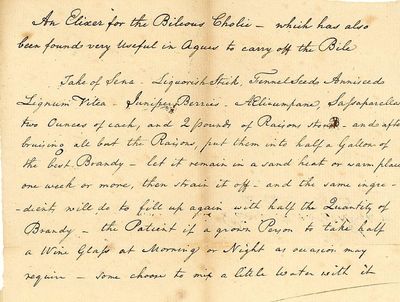 An Elixer for the Bileous Cholic - which has also
been found very Useful in Agues to carry off the Bile
Take of Sena - Liquorish Stick, Fennel Seeds Anniseeds
Lignum Vitea - Juniper Berries - Alicumpane, Safsaparella
two Ounces of each, and 2 pounds of Raisons stoned - and after
bruising all but the Raisons, put them into half a Gallon of
the best Brandy - let it remain in a sand heat or warm place
one week or more, then strain it off - and the same ingre-
-dients will do to fill up again with half the Quantity of
Brandy - the Patient if a grown Person to take half
a Wine Glass at Morning or Night as occasion may
require - some choose to mix a little Water with it